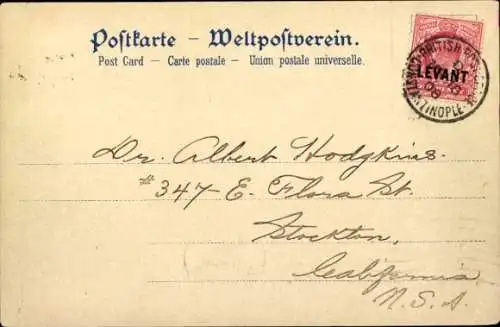 Postkarte - Weltpostverein.
Post Card — Carte postale — Union postale universelle.
LEVANT
BRITISH POST
Dr. Albert Hodgkins.
#347- E. Flora St.
Stockton,
California
U.S.A.